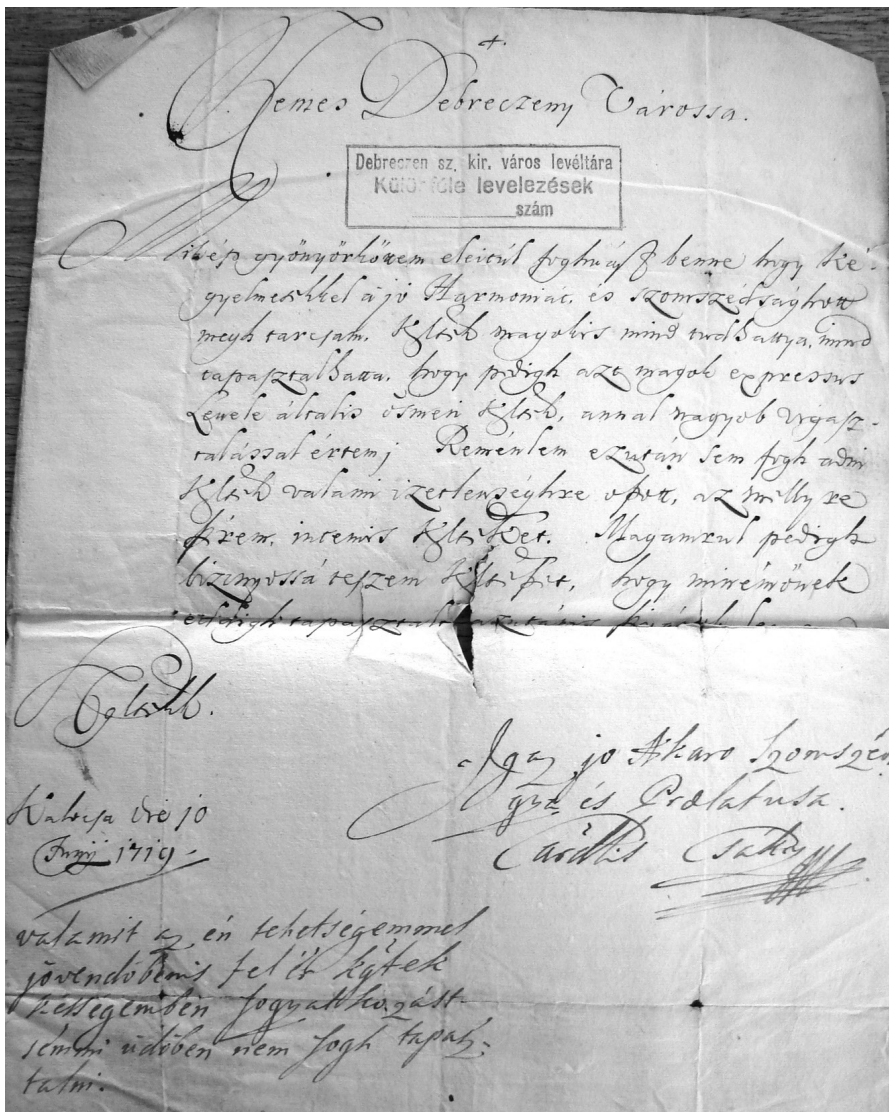 Nemes Debreczeny Várossa.
Debreczen sz. kir. város levéltára
Különféle levelezések
szám
Mikép gyönyörködtem eleitül foghvást benne hogy Ke-
gyelmetekkel a jó Harmoniát, és szomszédsághott
megh tarcsam, Kgltek magokis mind tudhattya, mind
tapasztalhatta, hogy pedigh azt magok expressus
Levele általis ösmeri Kgltek, annal nagyob vigasz-
talással értem; Reménlem ezután sem fogh adni
Kgltek valami izetlenséghre okott, az melly re
kérem, intemis Kglteket. Magamrul pedigh
bizonyossá teszem Kglteket, hogy minémönek
eddigh tapasztalt ezutánis
Kgltek.
Igaz jo Akaro Szomszéd-
gya és Prælatusa.
Kalocsa die 10
Junij 1719.
Csáky
valamit az én tehetségemmel
jövendöbenis fel ér kgtek
kessegemben fogyatkozást
semmi üdöben nem fogh tapasz-
talni.